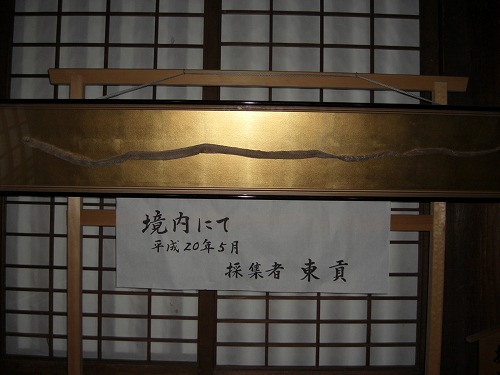 境内にて
平成20年5月
採集者 東 貢